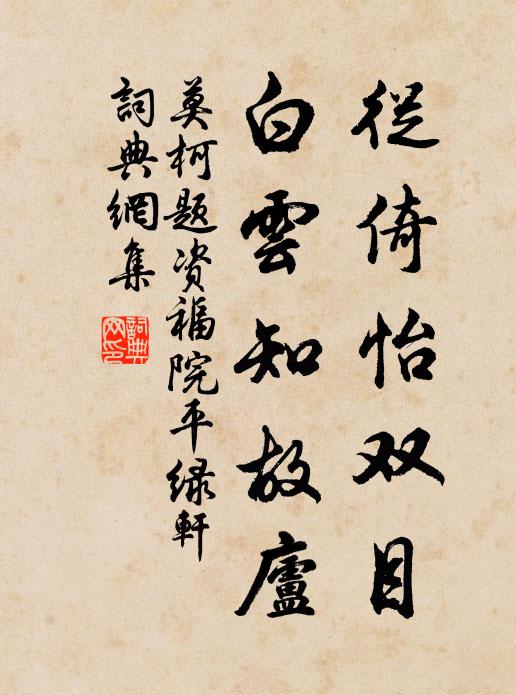 從倚怡双目
白雲知故廬
莫柯題资福院平緑軒
詞典網集
詞典網印